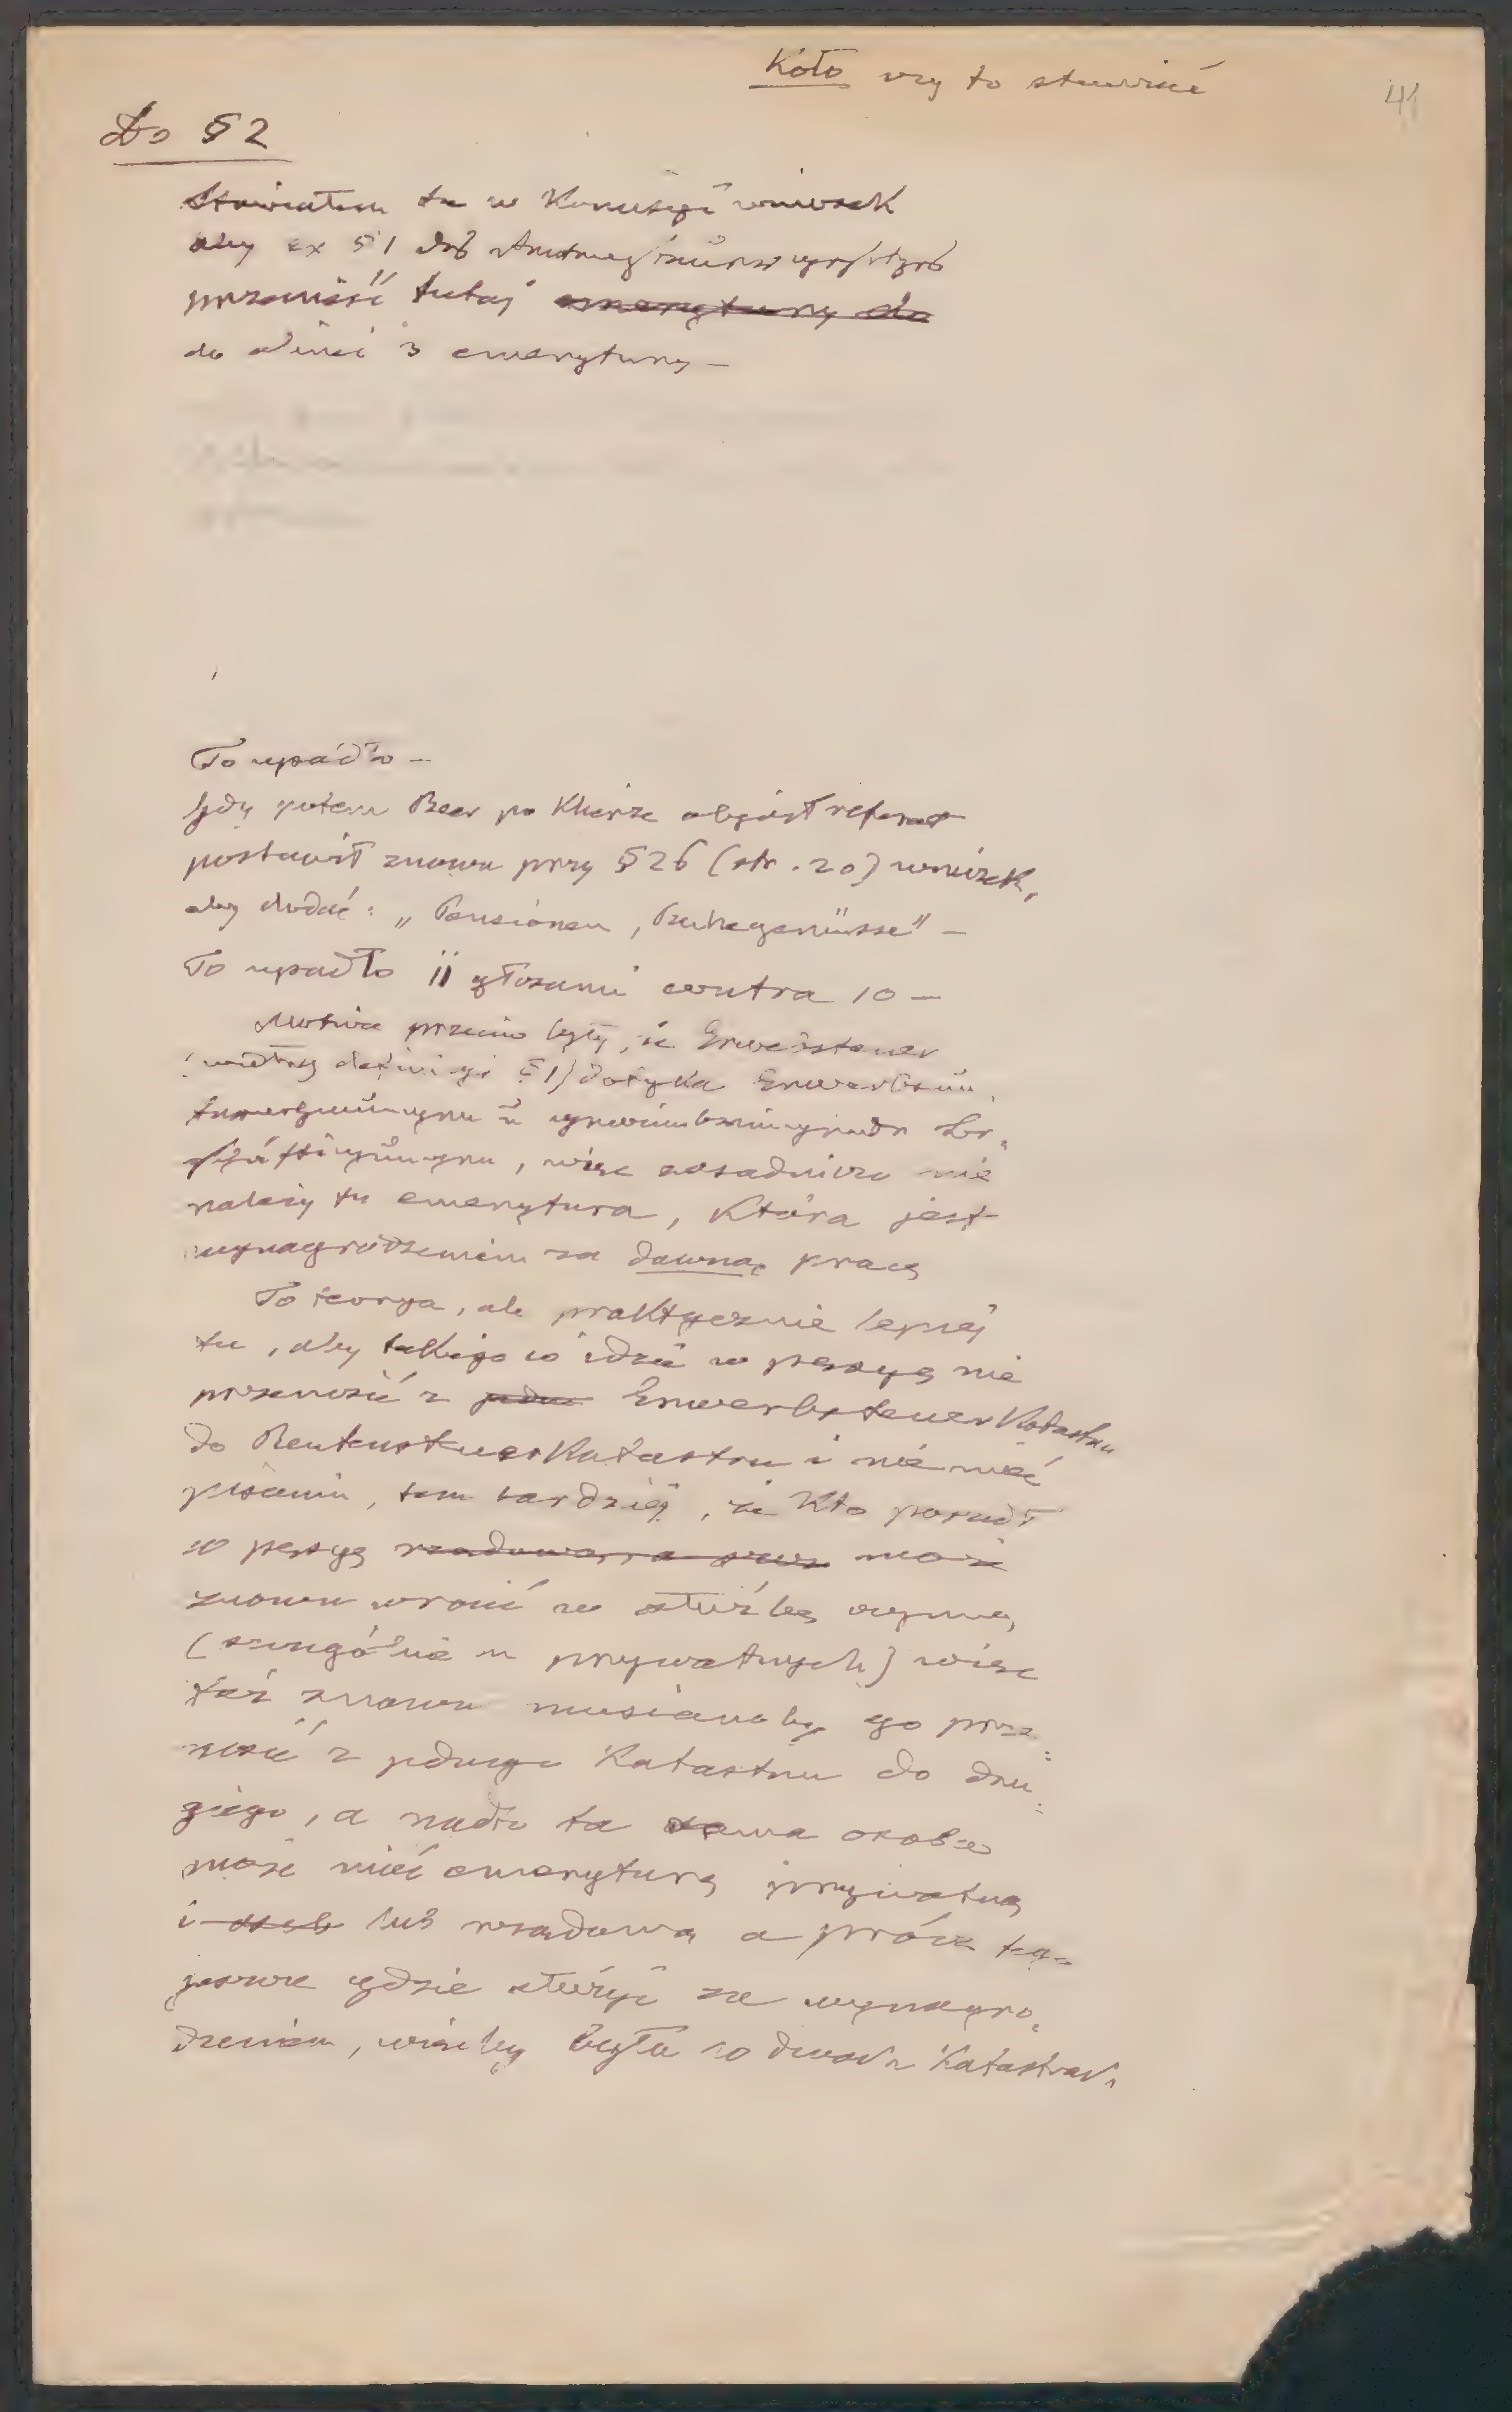 Koło czy to stawiać
41
Do § 2
Stawiałem tu w Komisyi wniosek
aby ex § 1 des
przenieść tutaj emerytury do
do alinei 3 emerytury —
To upadło —
Gdy potem Beer po objął referat
postawił znowu przy § 26 (str. 20) wniosek,
aby dodać: „Pensionen, Ruhegenüsse" —
To upadło 11 głosami contra 10 —
Motiva przeciw były, że Erwerbsteuer
według definicyi § 1) dotyka Erwerbsun,
ternehmungen u gewinnbringende Be,
schäftigungen, więc zasadniczo nie
należy tu emerytura, która jest
wynagrodzeniem za dawną pracę
To teorya, ale praktycznie lepiej
tu, aby takiego co idzie w pensyę nie
przenosić z jedne Erwerbsteuer Katastru
do Rentensteuer Katastru i nie mieć
pisania, tem bardziej, że kto poszedł
w pensyę może
znowu wrócić w służbę czynną,
(szczególnie u prywatnych) więc
też znowu musianoby go prze
nosić z jednego Katastru do dru
giego, a nadto ta sama osoba
może mieć emeryturę prywatną
i osob lub rządową a prócz tego
jeszcze gdzie służyć za wynagro,
dzeniem, więc by była w dwóch Katastrach.